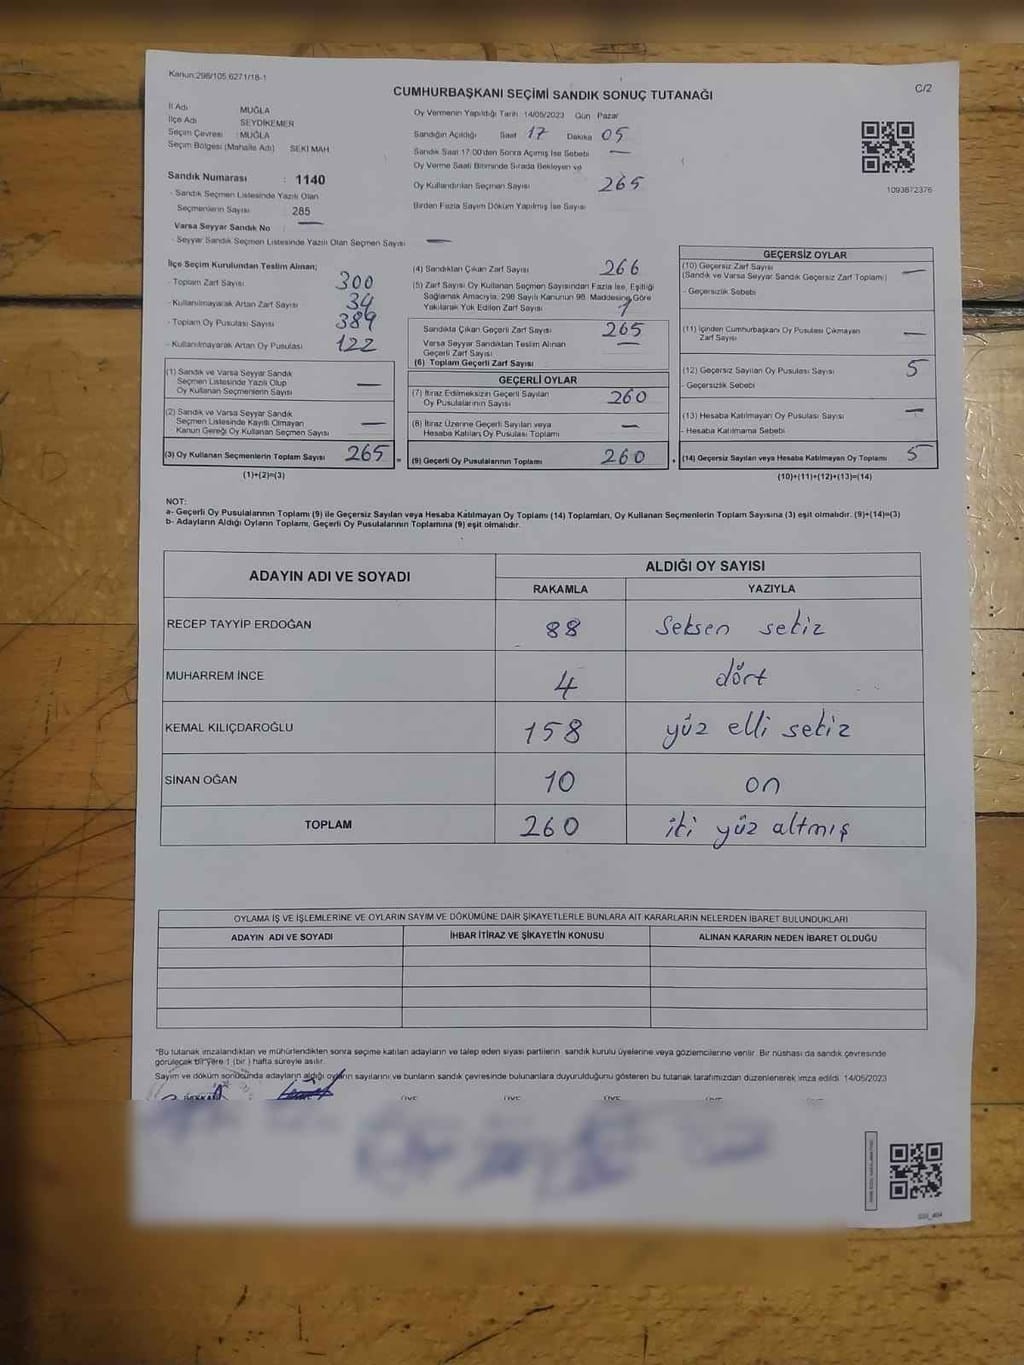 Kanun:298/105,6271/18-1
C/2
CUMHURBAŞKANI SEÇİMİ SANDIK SONUÇ TUTANAĞI
İl Adı MUĞLA
İlçe Adı SEYDİKEMER
Seçim Çevresi :MUĞLA
Seçim Bölgesi (Mahalle Adı) SEKİ MAH.
Sandık Numarası : 1140
- Sandık Seçmen Listesinde Yazılı Olan
Seçmenlerin Sayısı 285
Varsa Seyyar Sandık No —
- Seyyar Sandık Seçmen Listesinde Yazılı Olan Seçmen Sayısı —
Oy Vermenin Yapıldığı Tarih 14/05/2023 Gün Pazar
Sandığın Açıldığı Saat 17 Dakika 05
Sandık Saat 17:00'den Sonra Açımış İse Sebebi —
Oy Verme Saati Bitiminde Sırada Bekleyen ve
Oy Kullandırılan Seçmen Sayısı 265
Birden Fazla Sayım Döküm Yapılmış İse Sayısı
1093872376
İlçe Seçim Kurulundan Teslim Alınan;
- Toplam Zarf Sayısı 300
- Kullanılmayarak Artan Zarf Sayısı 34
- Toplam Oy Pusulası Sayısı 389
- Kullanılmayarak Artan Oy Pusulası 122
(1) Sandık ve Varsa Seyyar Sandık
Seçmen Listesinde Yazılı Olup
Oy Kullanan Seçmenlerin Sayısı —
(2) Sandık ve Varsa Seyyar Sandık
Seçmen Listesinde Kayıtlı Olmayan
Kanun Gereği Oy Kullanan Seçmen Sayısı —
(3) Oy Kullanan Seçmenlerin Toplam Sayısı 265
(1)+(2)=(3)
(4) Sandıktan Çıkan Zarf Sayısı 266
(5) Zarf Sayısı Oy Kullanan Seçmen Sayısından Fazla İse, Eşitliği
Sağlamak Amacıyla, 298 Sayılı Kanunun 98. Maddesine Göre
Yakılarak Yok Edilen Zarf Sayısı 1
Sandıkta Çıkan Geçerli Zarf Sayısı 265
Varsa Seyyar Sandıktan Teslim Alınan
Geçerli Zarf Sayısı —
(6) Toplam Geçerli Zarf Sayısı
GEÇERLİ OYLAR
(7) İtiraz Edilmeksizin Geçerli Sayılan
Oy Pusulalarının Sayısı 260
(8) İtiraz Üzerine Geçerli Sayılan veya
Hesaba Katılan Oy Pusulası Toplamı —
= (9) Geçerli Oy Pusulalarının Toplamı 260
GEÇERSİZ OYLAR
(10) Geçersiz Zarf Sayısı —
(Sandık ve Varsa Seyyar Sandık Geçersiz Zarf Toplamı)
- Geçersizlik Sebebi
(11) İçinden Cumhurbaşkanı Oy Pusulası Çıkmayan
Zarf Sayısı —
(12) Geçersiz Sayılan Oy Pusulası Sayısı 5
- Geçersizlik Sebebi
(13) Hesaba Katılmayan Oy Pusulası Sayısı —
- Hesaba Katılmama Sebebi
+ (14) Geçersiz Sayılan veya Hesaba Katılmayan Oy Toplamı 5
(10)+(11)+(12)+(13)=(14)
NOT:
a- Geçerli Oy Pusulalarının Toplamı (9) ile Geçersiz Sayılan veya Hesaba Katılmayan Oy Toplamı (14) Toplamları, Oy Kullanan Seçmenlerin Toplam Sayısına (3) eşit olmalıdır. (9)+(14)=(3)
b- Adayların Aldığı Oyların Toplamı, Geçerli Oy Pusulalarının Toplamına (9) eşit olmalıdır.
ADAYIN ADI VE SOYADI
ALDIĞI OY SAYISI
RAKAMLA YAZIYLA
RECEP TAYYİP ERDOĞAN 88 Seksen sekiz
MUHARREM İNCE 4 dört
KEMAL KILIÇDAROĞLU 158 yüz elli sekiz
SİNAN OĞAN 10 on
TOPLAM 260 iki yüz altmış
OYLAMA İŞ VE İŞLEMLERİNE VE OYLARIN SAYIM VE DÖKÜMÜNE DAİR ŞİKAYETLERLE BUNLARA AİT KARARLARIN NELERDEN İBARET BULUNDUKLARI
ADAYIN ADI VE SOYADI İHBAR İTİRAZ VE ŞİKAYETİN KONUSU ALINAN KARARIN NEDEN İBARET OLDUĞU
*Bu tutanak imzalandıktan ve mühürlendikten sonra seçime katılan adayların ve talep eden siyasi partilerin sandık kurulu üyelerine veya gözlemcilerine verilir. Bir nüshası da sandık çevresinde
görülecek bir yere 1 (bir ) hafta süreyle asılır.
Sayım ve döküm sonucunda adayların aldığı oyların sayılarını ve bunların sandık çevresinde bulunanlara duyurulduğunu gösteren bu tutanak tarafımızdan düzenlenerek imza edildi. 14/05/2023
ÜYE ÜYE ÜYE ÜYE ÜYE